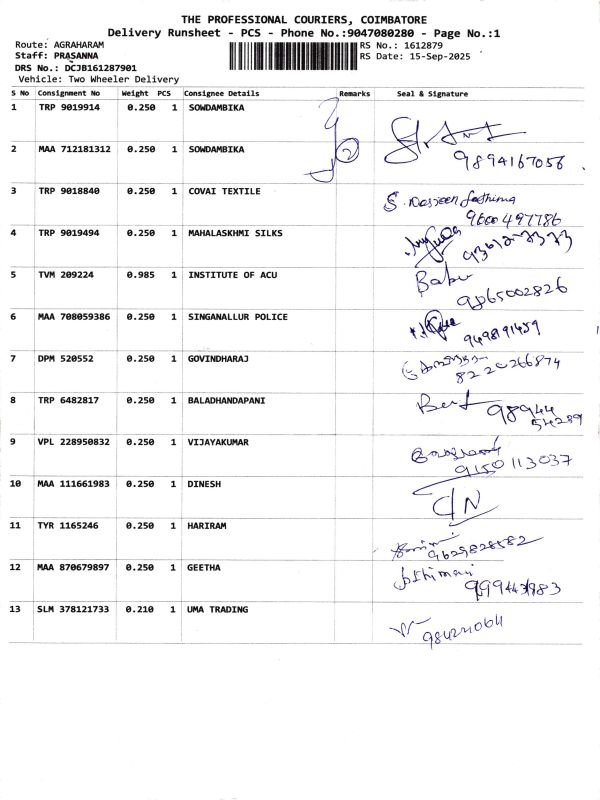 THE PROFESSIONAL COURIERS, COIMBATORE
Delivery Runsheet - PCS - Phone No.:9047080280 - Page No.:1
Route: AGRAHARAM
Staff: PRASANNA
DRS No.: DCJB161287901
Vehicle: Two Wheeler Delivery
RS No.: 1612879
RS Date: 15-Sep-2025
S No Consignment No Weight PCS Consignee Details Remarks Seal & Signature
1 TRP 9019914 0.250 1 SOWDAMBIKA
2 MAA 712181312 0.250 1 SOWDAMBIKA 2
9894167056
3 TRP 9018840 0.250 1 COVAI TEXTILE S.
9600497786
4 TRP 9019494 0.250 1 MAHALASKHMI SILKS
5 TVM 209224 0.985 1 INSTITUTE OF ACU Babu
9865002826
6 MAA 708059386 0.250 1 SINGANALLUR POLICE
7 DPM 520552 0.250 1 GOVINDHARAJ
8220266874
8 TRP 6482817 0.250 1 BALADHANDAPANI
98944
54289
9 VPL 228950832 0.250 1 VIJAYAKUMAR
9150113037
10 MAA 111661983 0.250 1 DINESH
11 TYR 1165246 0.250 1 HARIRAM
9629828582
12 MAA 870679897 0.250 1 GEETHA
13 SLM 378121733 0.210 1 UMA TRADING